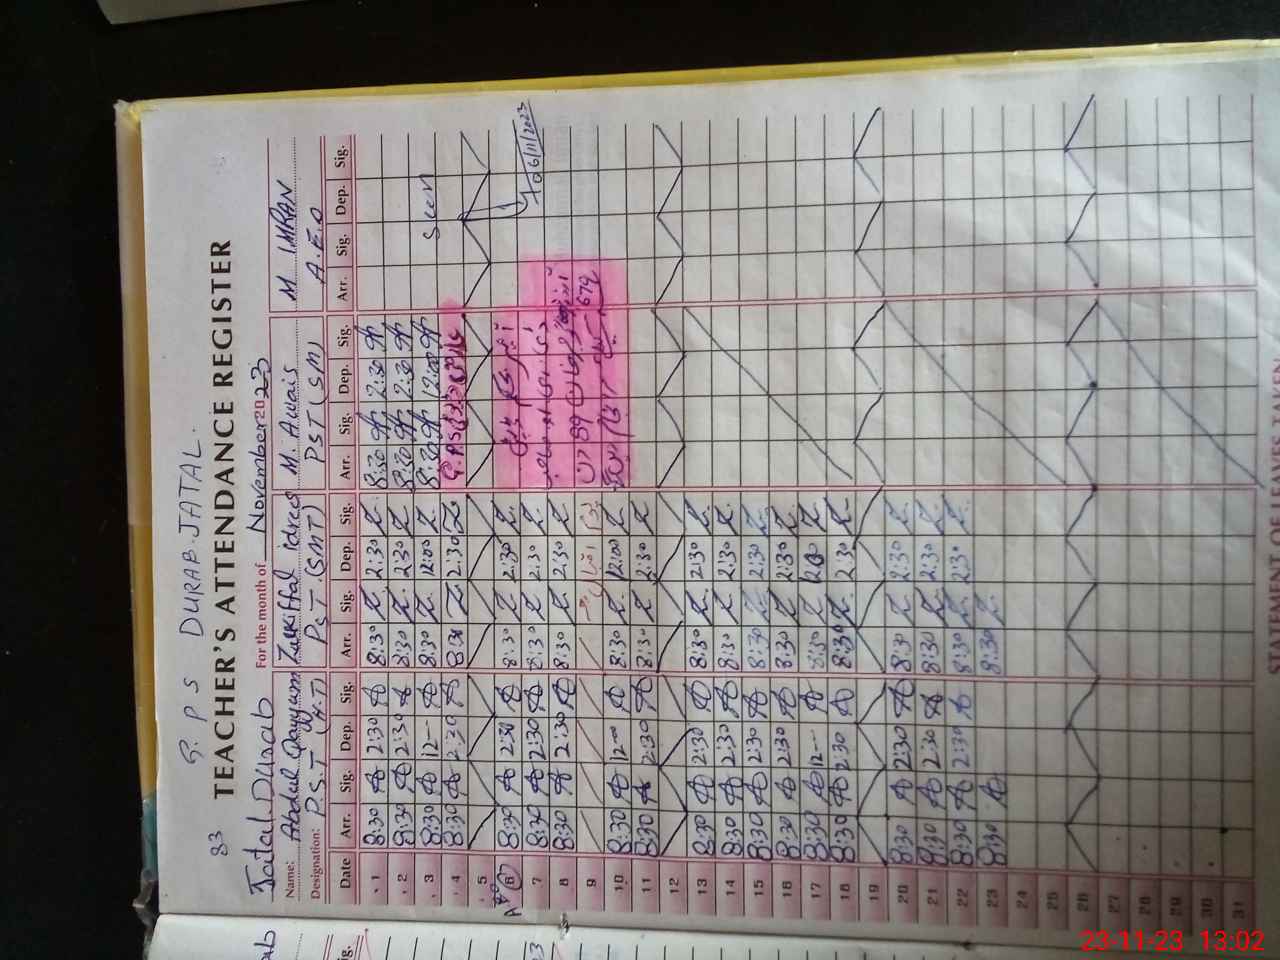 G. P S DURAB.JATAL.
83 TEACHER'S ATTENDANCE REGISTER
Jatal Durab For the month of November 2023
Name: Abdul Qayyum Zulkiffal idrees M. Awais M IMRAN
Designation: P.S.T (H.T) PST (SMT) PST (SM) A.E.O
Date Arr. Sig. Dep. Sig. Arr. Sig. Dep. Sig. Arr. Sig. Dep. Sig. Arr. Sig. Dep. Sig.
1 8:30 2:30 8:30 2:30 8:30 2:30
2 8:30 2:30 8:30 2:30 8:30 2:30
3 8:30 12-- 8:30 12:00 8:30 12:00 Seen
4 8:30 2:30 8:30 2:30
5
6 8:30 2:30 8:30 2:30
7 8:30 2:30 8:30 2:30 06/11/2023
8 8:30 2:30 8:30 2:30
9
10 8:30 12-00 8:30 12:00
11 8:30 2:30 8:30 2:30
12
13 8:30 2:30 8:30 2:30
14 8:30 2:30 8:30 2:30
15 8:30 2:30 8:30 2:30
16 8:30 2:30 8:30 2:30
17 8:30 12-- 8:30
18 8:30 2:30 8:30 2:30
19
20 8:30 2:30 8:30 2:30
21 8:30 2:30 8:30 2:30
22 8:30 2:30 8:30 2:30
23 8:30 8:30
24
25
26
27
28
29
30
31
STATEMENT OF LEAVES TAKEN
23-11-23 13:02